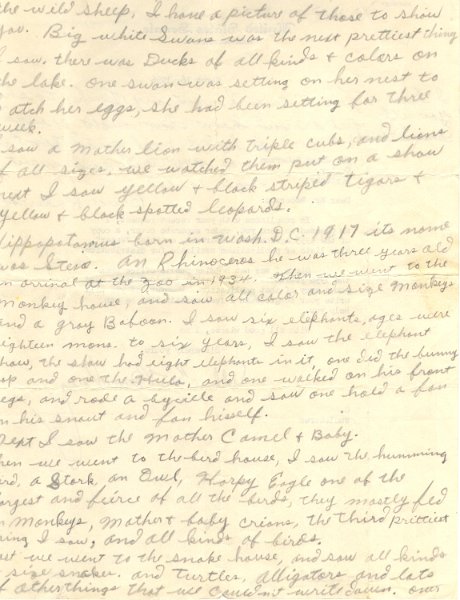 the wild sheep, I have a picture of those to show
you. Big white Swans was the next prettiest thing
I saw. there was Ducks of all kinds & colors on
the lake. one swan was setting on her nest to
atch her eggs, she had been setting for three
week.
saw a Mother lion with triple cubs, and lions
f all sizes, we watched them put on a show
next I saw yellow & black striped tigars &
yellow & black spotted leopards.
ippopotamus born in Wash. D.C. 1917 its name
was Steve. An Rhinoceros he was three years old
n arrival at the zoo in 1934. then we went to the
monkey house, and saw all color and size Monkeys
and a gray Baboon. I saw six elephants, ages were
eighteen mons. to six years, I saw the elephant
show, the show had eight elephants in it, one did the bunny
op and one the Hula, and one walked on his front
egs, and rode a bycicle and saw one hold a fan
n his snout and fan hisself.
Next I saw the Mother Camel & Baby.
hen we went to the bird house, I saw the humming
ird, a Stork, an Owl, Harpy Eagle one of the
argest and feirce of all the birds, they mostly fed
n Monkeys, Mother & baby the third prettiest
hing I saw, and all kinds of birds.
we went to the snake house, and saw all kinds
size snakes. and turtles, alligators and lots
f other things that we couldn't write down.